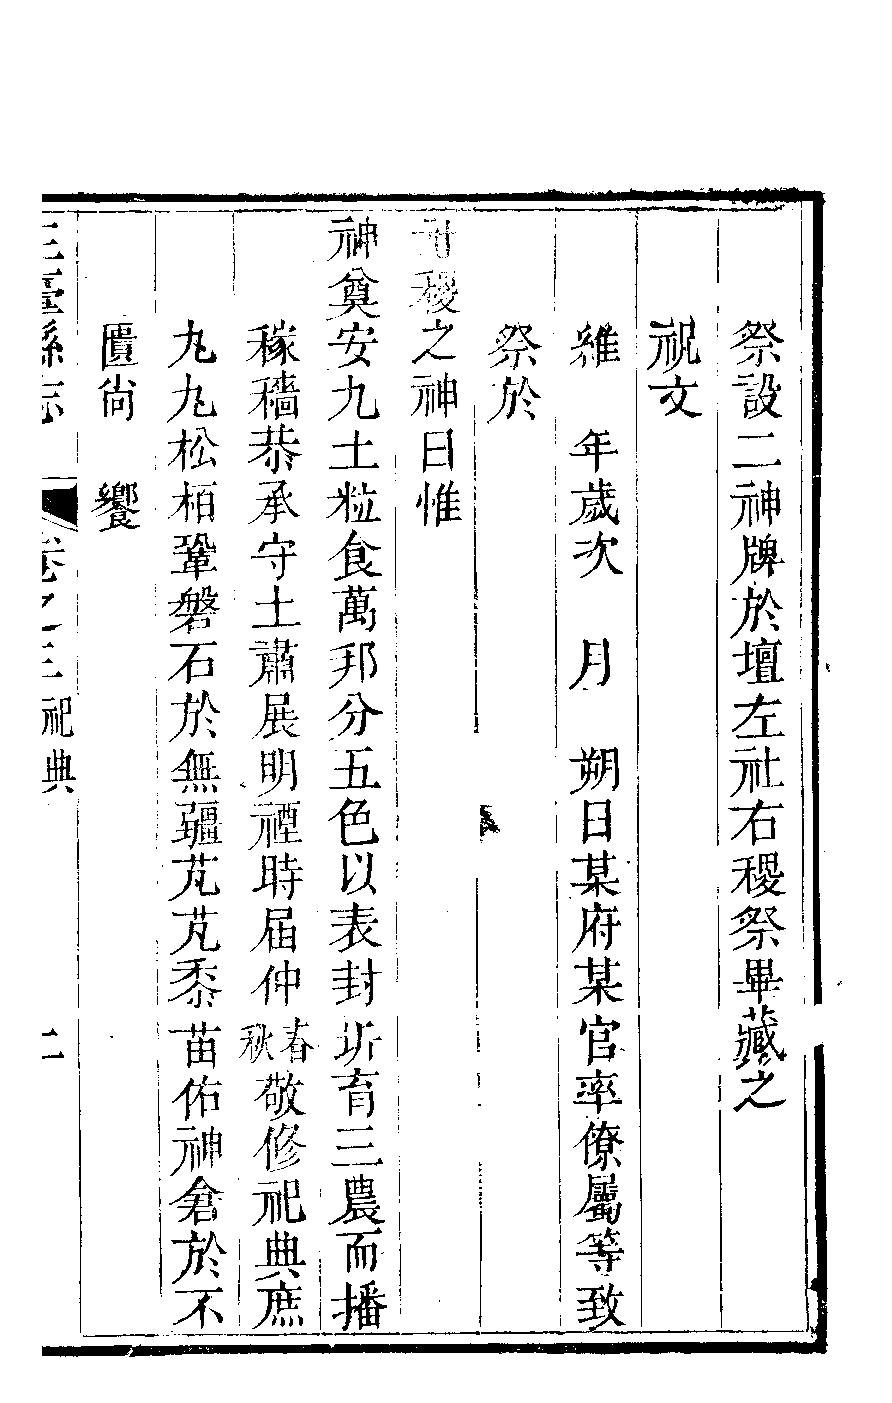 祭設二神牌於壇左社右稷祭畢藏之
祝文
維　年歲次　月　朔日某府某官率僚屬等致
祭於
社稷之神曰惟
神奠安九土粒食萬邦分五色以表封圻育三農而播
稼穡恭承守土肅展明禋時屆仲春秋敬修祀典庶
丸丸松栢鞏磐石於無疆芃芃黍苗佑神倉於不
匱尚　饗
三臺縣志　卷之三祀典　二